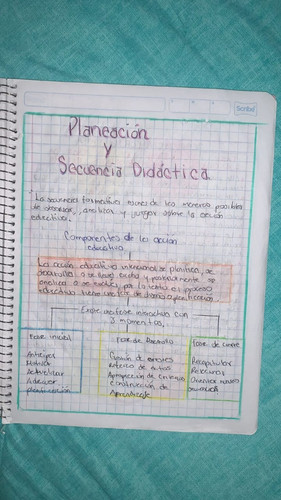 Scribe
Planeación
y
Secuencia Didáctica
La secuencia formativa nace de las maneras posibles
de observar, analizar y juzgar sobre la acción
educativa.
Componentes de la acción
educativa
La acción educativa intencional se planifica, se
desarrolla o se lleva acto y posteriormente se
analiza o se evalúa, por lo tanto el proceso
educativo tiene una fase de diseño y planificación
Existe una fase interactiva con
3 momentos,
Fase inicial
Fase de Desarrollo
Fase de cierre
Anticipar
Motivar
Activar
Adecuar
planificación
Gestión de errores
Apropiación de
construcción de
Aprendizaje.
Recapitular
Relacionar